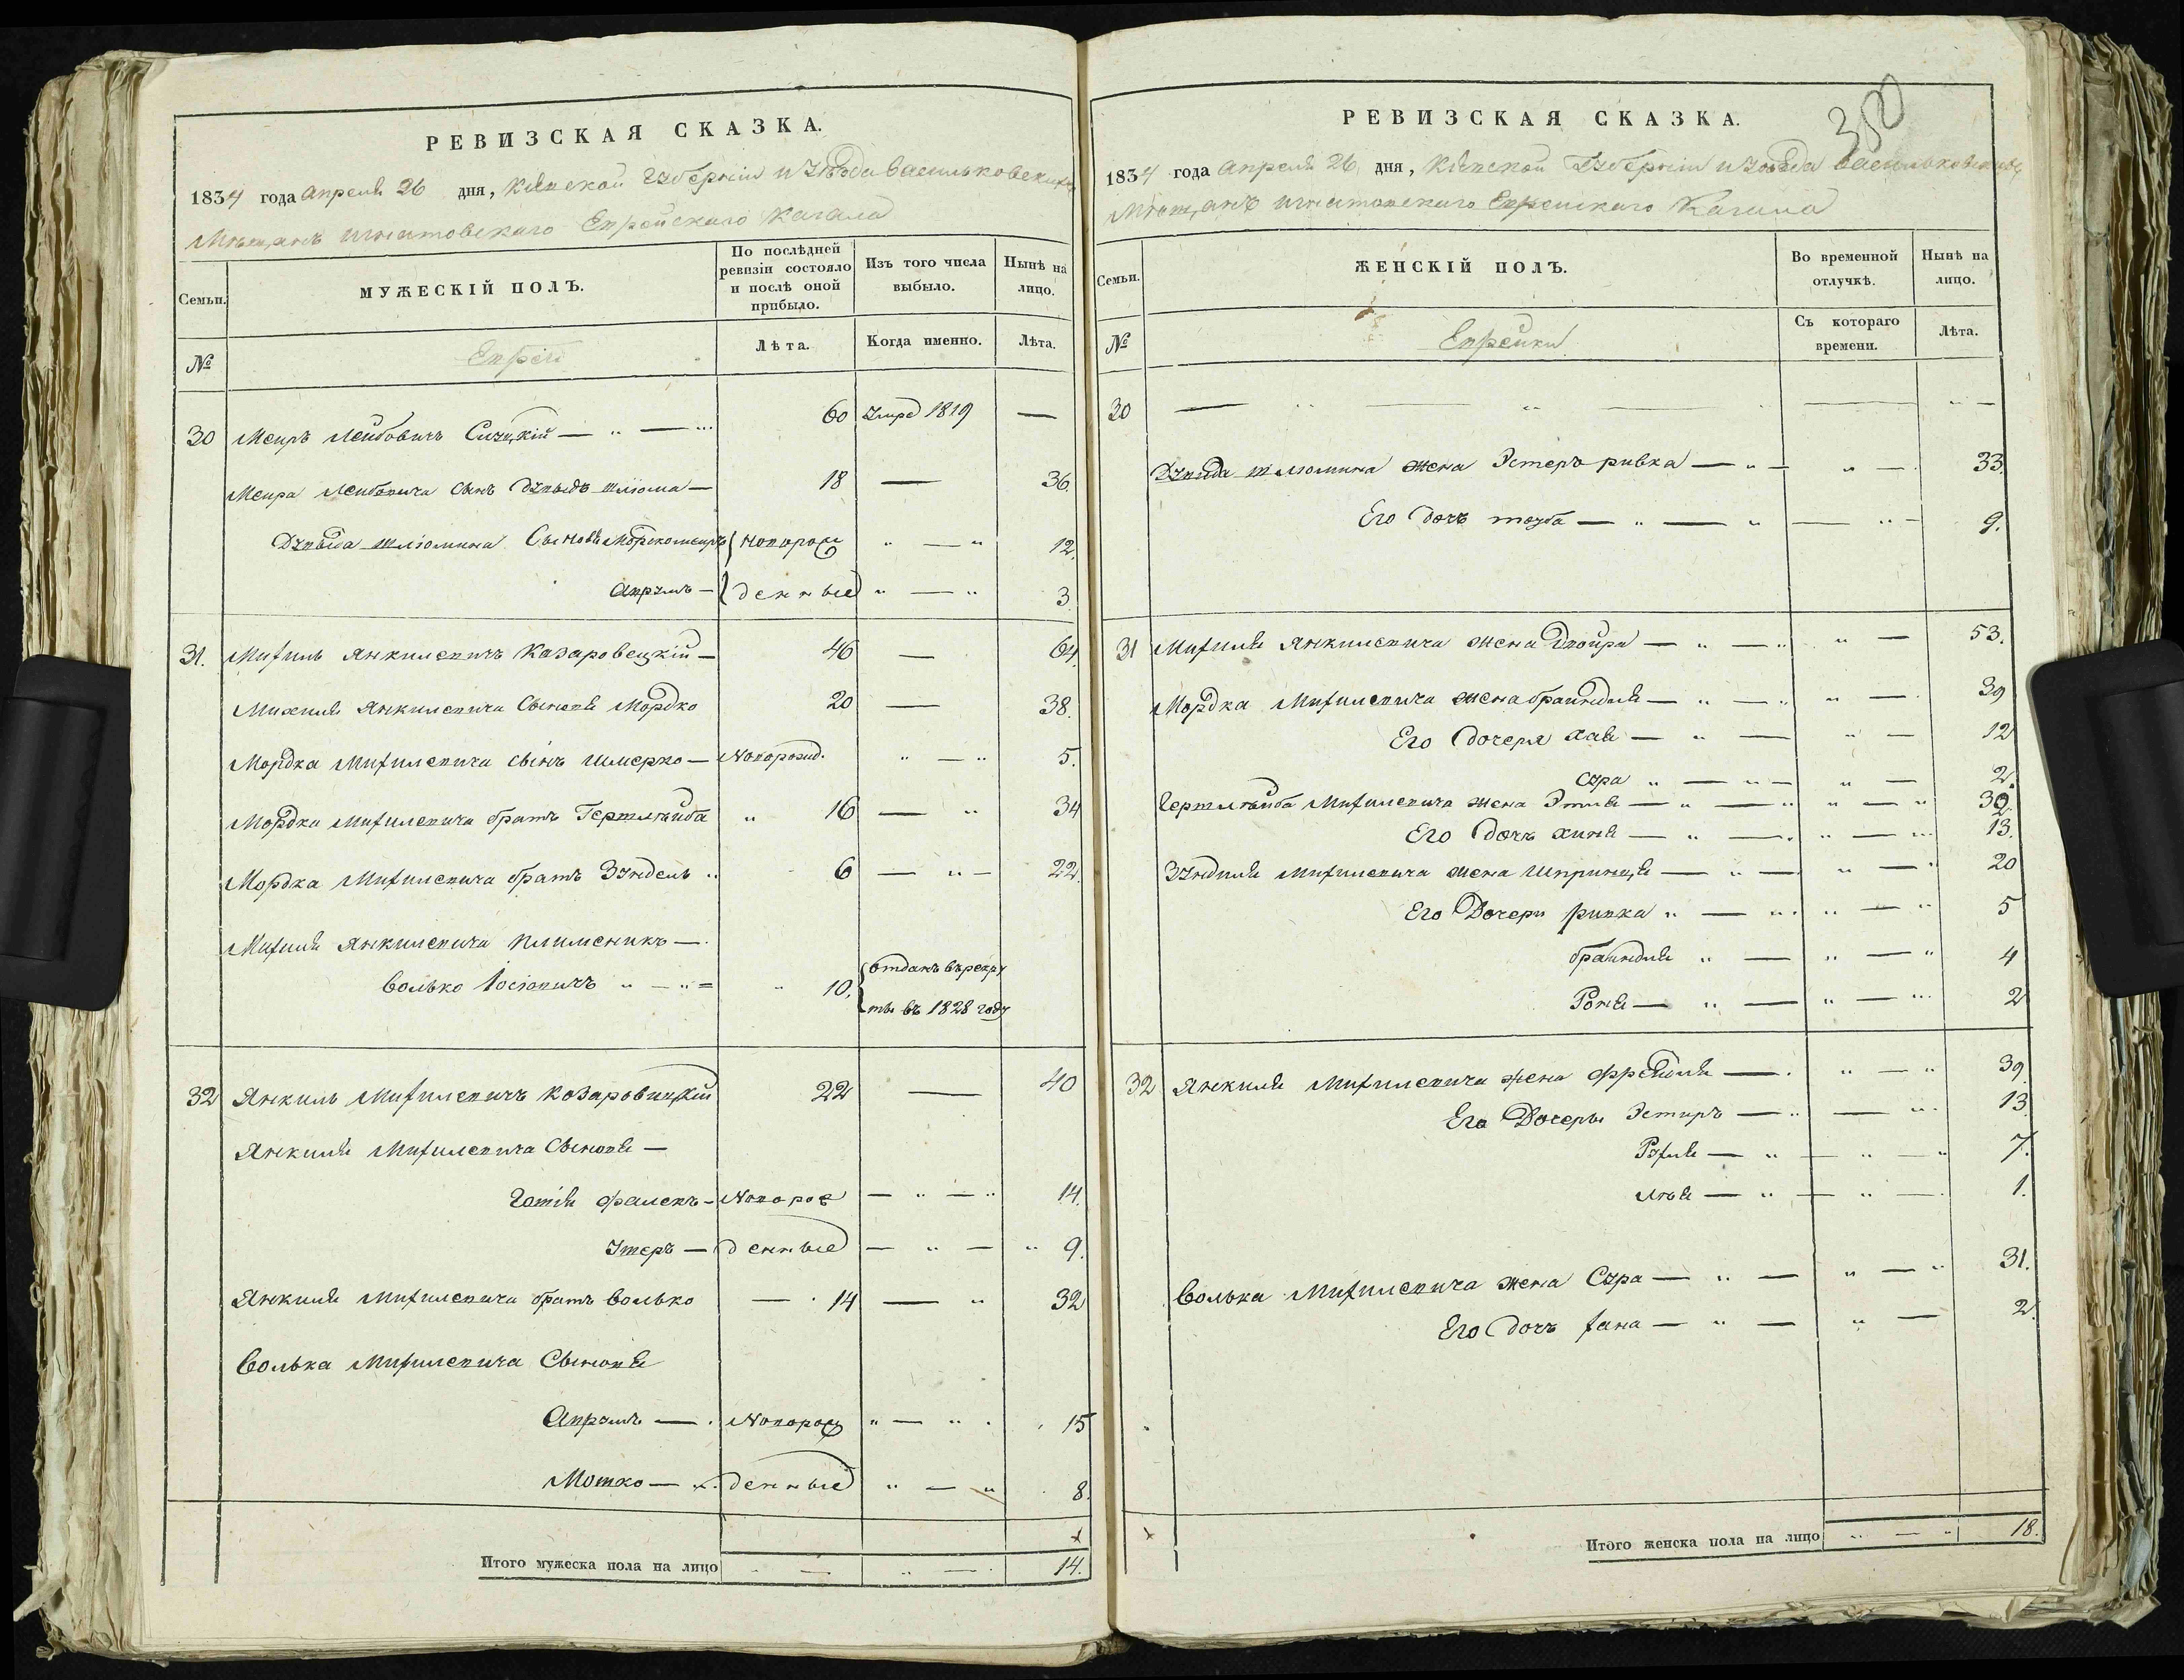 РЕВИЗСКАЯ СКАЗКА.
1834 года Апреля 26 дня, Кіевской Губерніи и Уѣзда Васильковскихъ
Мѣщанъ Игнатовскаго Еврейскаго Кагала
Семьи.
МУЖЕСКІЙ ПОЛЪ.
По послѣдней ревизіи состояло и послѣ оной прибыло.
Изъ того числа выбыло.
Нынѣ на лицо.
№
Евреи
Лѣта.
Когда именно.
Лѣта.
30 Меиръ Лейбовичъ Сицкій — 60 Умре 1819 —
Меира Лейбовича сынъ Дувыдъ Шлюма — 18 — 36.
Дувыда Шлюмина Сыновья Мордкомеиръ Новорож 12.
Аврумъ — денные 3
31. Михель Янкилевичъ Казаровецкій — 46 — 64.
Михиля Янкилевича Сыновья Мордко 20 — 38.
Мордка Михилевича сынъ Шмерко — Новорожд. 5.
Мордка Михилевича братъ Гершлейба 16 — 34
Мордка Михилевича братъ Зундель 6 — 22.
Михиля Янкилевича племеникъ —
Волько Іосіовичъ 10. Отданъ въ рекру
ты въ 1828 году
32 Янкиль Михилевичъ Козаровицкій 22 — 40
Янкиля Михилевича Сыновья —
Готля Фалекъ — Новорож — 14.
Утеръ — денные — 9.
Янкиля Михилевича братъ Волько — 14 — 32
Волька Михилевича Сыновья
Аврумъ — Новорож — 15
Мотко — денные — 8.
Итого мужеска пола на лицо 14.
350
РЕВИЗСКАЯ СКАЗКА.
1834 года Апреля 26 дня, Кіевской Губерніи и Уѣзда Васильковскихъ
Мѣщанъ Игнатовскаго Еврейскаго Кагала
Семьи.
ЖЕНСКІЙ ПОЛЪ.
Во временной отлучкѣ.
Нынѣ на лицо.
№
Еврейки
Съ котораго времени.
Лѣта.
30 —
Дувида Шлюмина жена Эстеръ ривка — 33.
Его дочь тауба — 9.
31 Михиля Янкилевича жена Двойра — 53.
Мордка Михилевича жена браиндля — 39
Его дочеря хая — 12
Сура 2.
Гершлейба Михилевича жена Этля — 30.
Его дочь хиня — 13.
Зундиля Михилевича жена Шпринця — 20
Его Дочери ривка 5
браиндля 4
Роня — 2
32 Янкиля Михилевича жена Фрейдля — 39.
Его Дочеры Эстиръ — 13
Рухля — 7.
Лѣя — 1.
Волька Михилевича жена Сура — 31.
Его дочь хана — 2.
Итого женска пола на лицо 18.